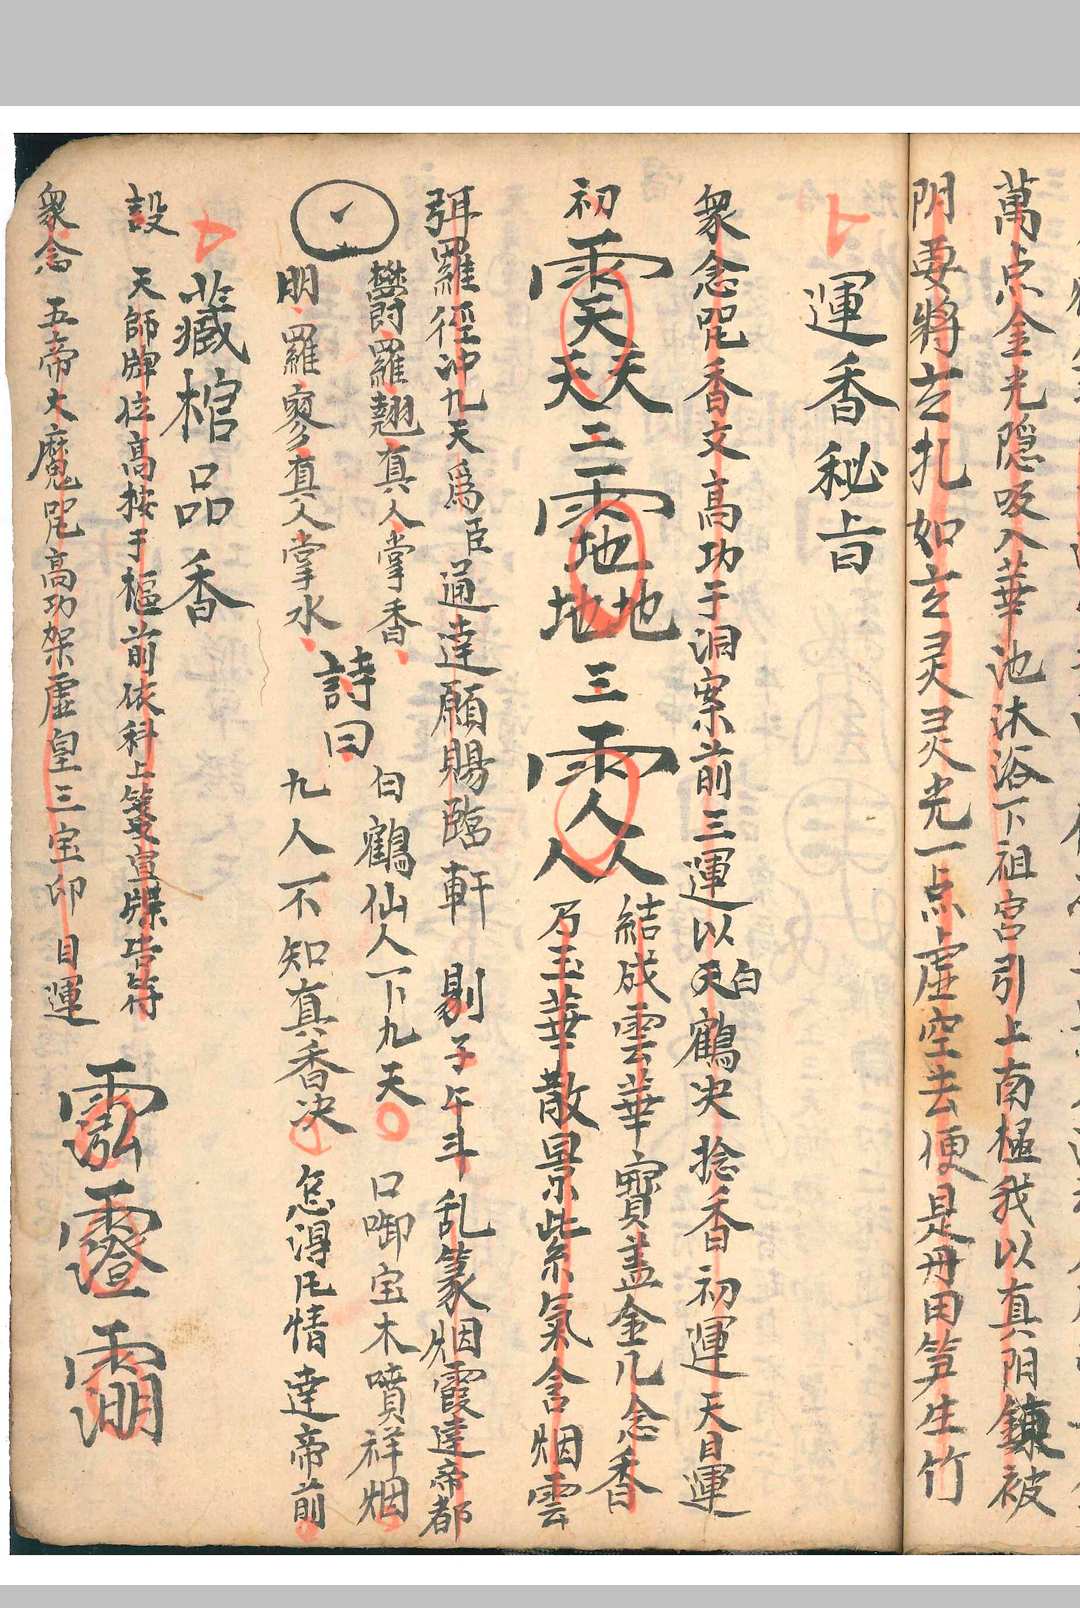 萬点金光隐吸入華池沐浴下祖宮引上南極我以真阴鍊被
阴要將玄扎如玄灵灵光一点虛空去便是丹田笋生竹
運香秘旨
衆念咒香文高功于洞案前三運以天白鶴决捻香初運天目運
初 䨺天天 二 地地 三 人人
結成雲華寶盖金凡念香
乃玉華散景此系氣含烟雲
弭羅徑冲九天為臣通達願賜臨軒 剔子午斗乱篆烟霞達帝都
欝羅翹真人掌香
明羅寥真人掌水
詩曰
白鶴仙人下九天 口啣宝木噴祥烟
九人不知真香决 怎淂凡情達帝前
藏棺品香
設 天師牌位高按于樞前依科上箋宣牒告符
衆念 五帝大魔咒高功架虛皇三宝印目運